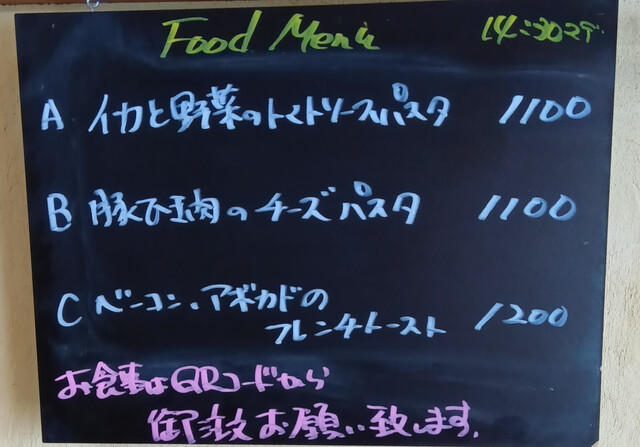 Food Menu 14:30マデ
A イカと野菜のトマトソースパスタ 1100
B 豚ひき肉のチーズパスタ 1100
C ベーコン、アボカドの
フレンチトースト 1200
お食事はQRコードから
御注文お願い致します。